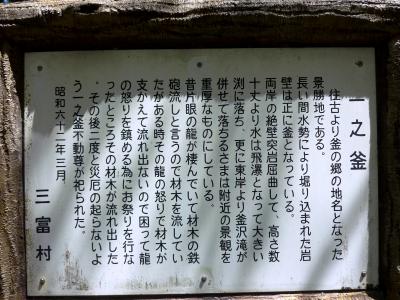 一之釜
往古より釜の郷の地名となった
景勝地である。
長い間水勢により堀り込まれた岩
壁は正に釜となっている。
両岸の絶壁突岩屈曲して、高さ数
十丈より水は飛瀑となって大きい
渕に落ち、更に東岸より釜沢滝が
併せて落ちるさまは附近の景観を
重厚なものにしている。
昔片眼の龍が棲んでいて材木の鉄
砲流しと言うので材木を流してい
たがある時その龍の怒りで材木が
支かえて流れ出ないので困って龍
の怒りを鎮める為にお祭りを行な
ったところその材木が流れ出した
。その後二度と災厄の起らないよ
う一之釜不動尊が祀られた。
昭和六十二年三月
三富村